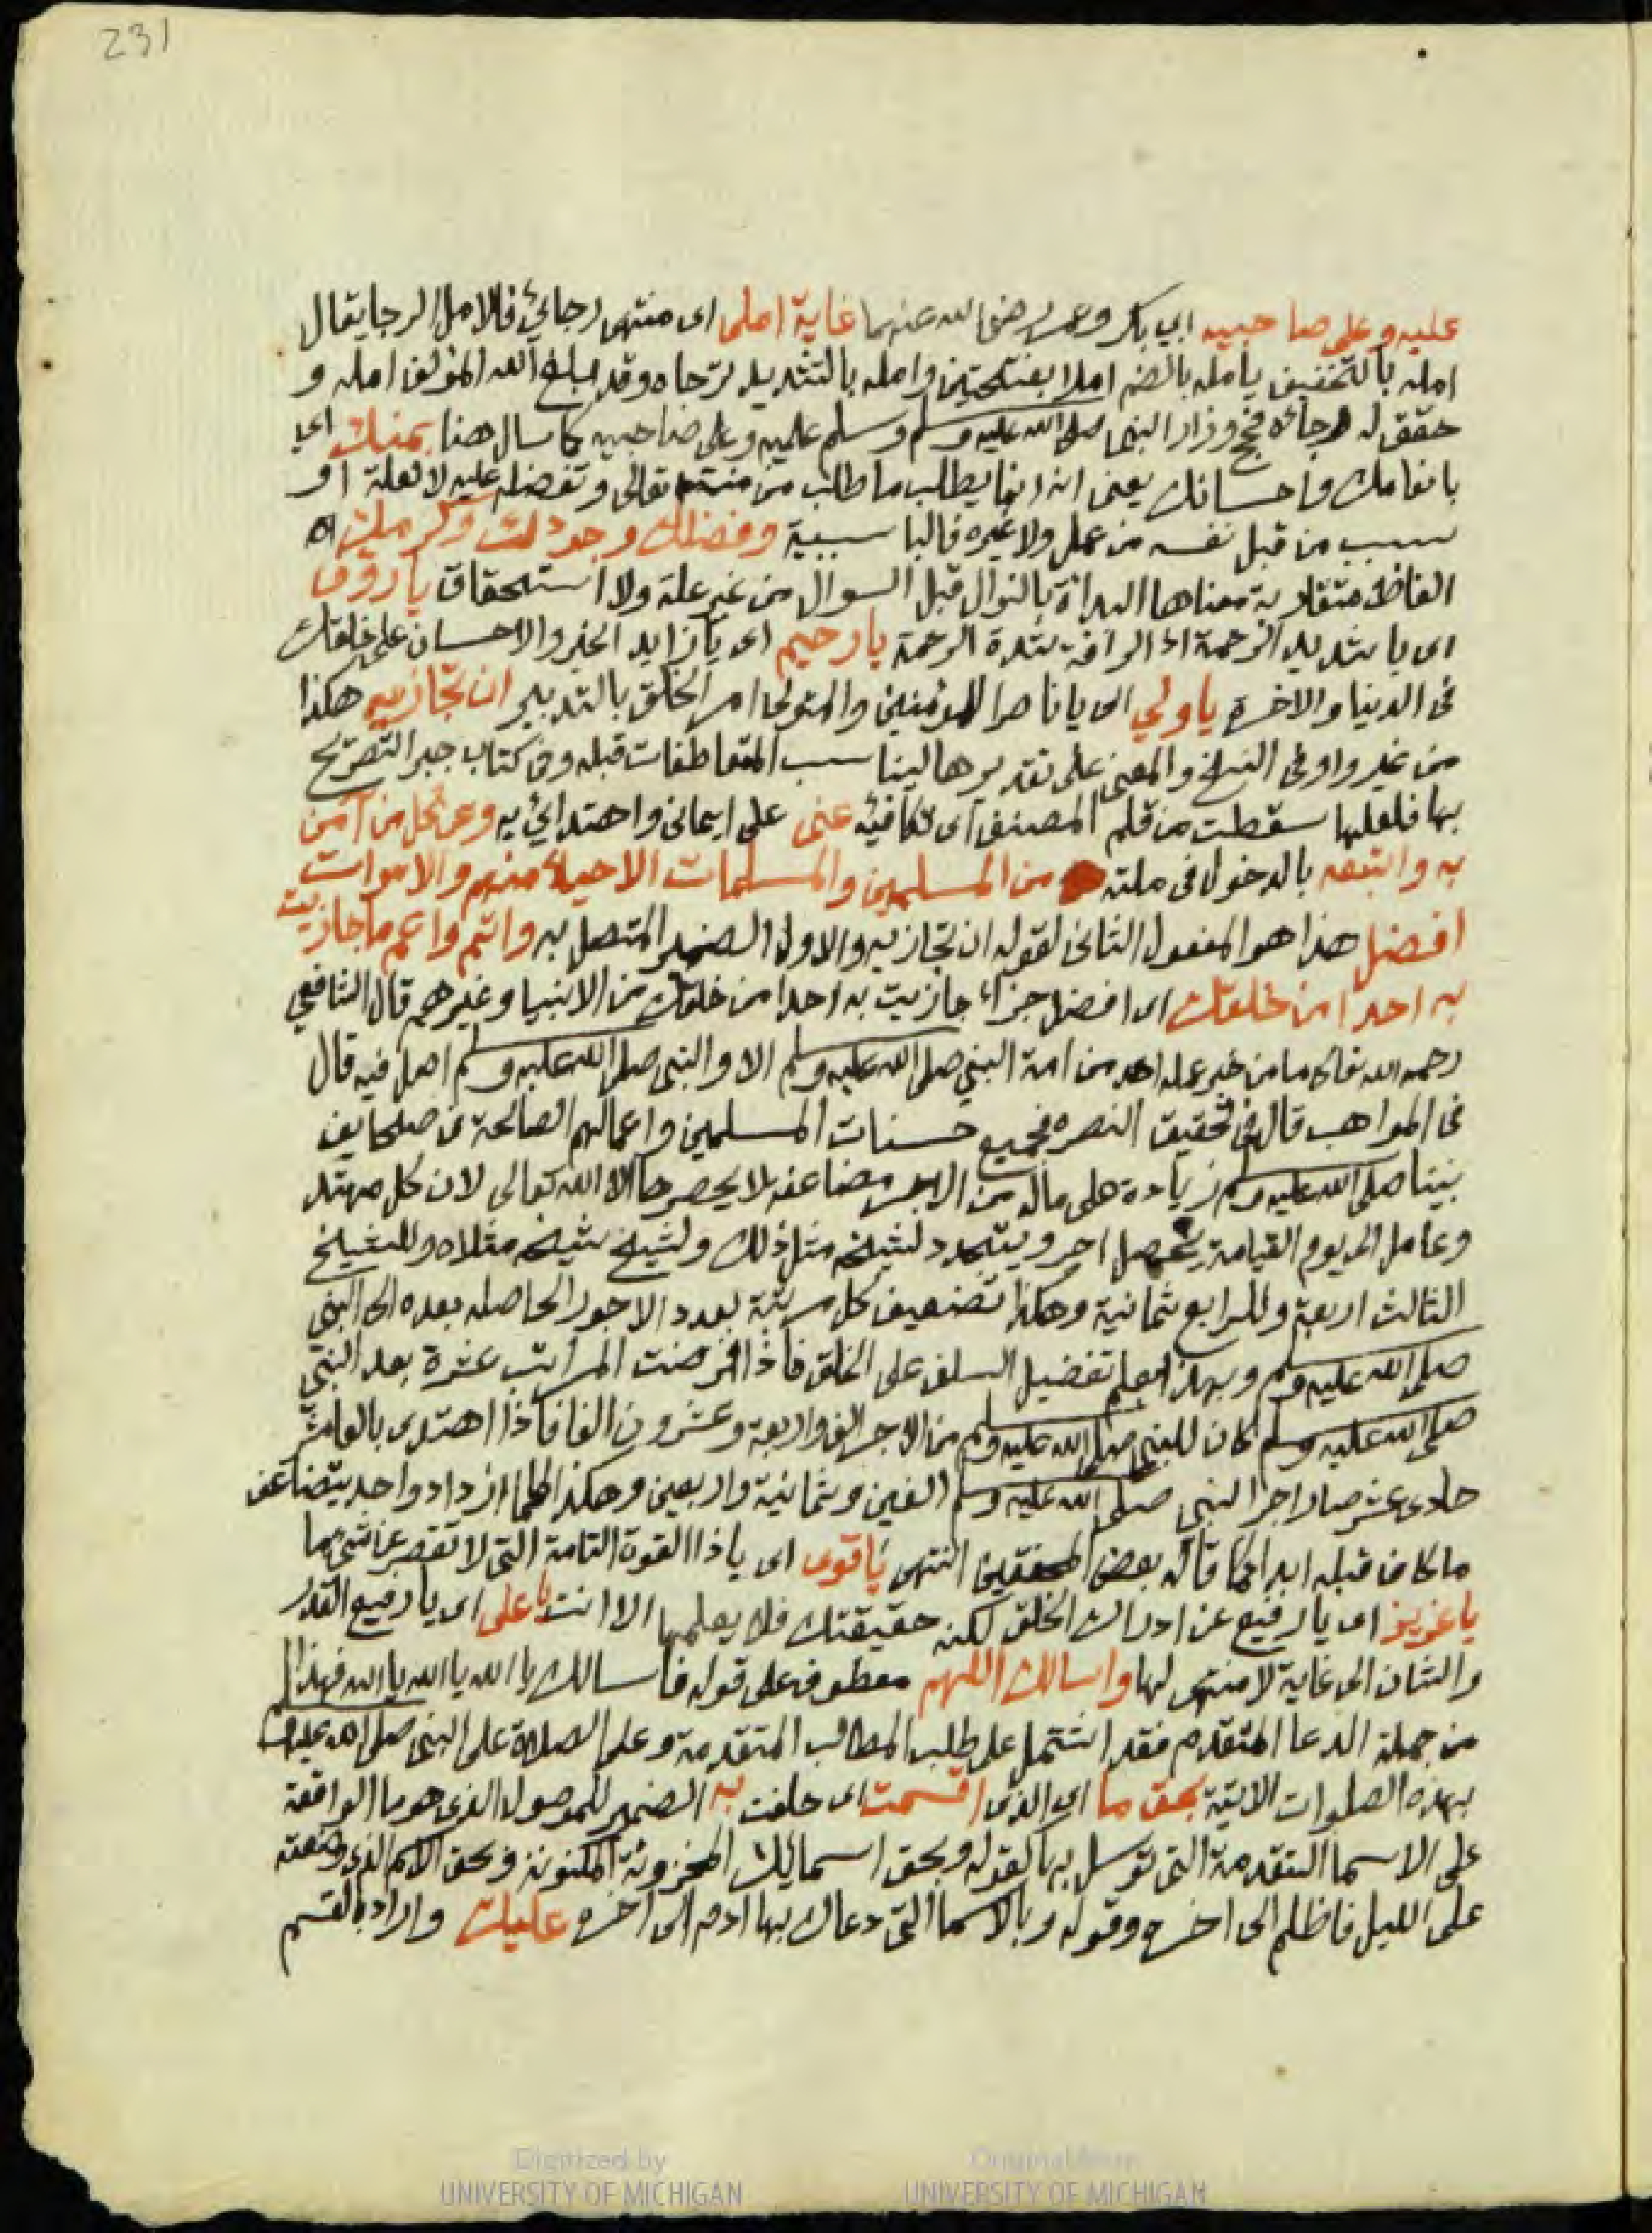 231
عليه وعلى صاحبيه ابي بكر وعمر رضي الله عنهما غاية املى اى منتهى رجائي فالامل الرجا يقال
امله بالتخفيف يامله بالضم املا بفتحتين وامله بالتشديد ترجاه وقد بلغ الله المؤلف امله و
حقق له رجائه فحج وزار النبي صلى الله عليه وسلم وسلم عليه وعلى صاحبيه كما سال هنا بمنك اي
بانعامك واحسانك يعنى انه انما يطلب ما طلب من منته تعالى وتفضله عليه لا لعلة او
سبب من قبل نفسه من عمل ولا غيره فالبا سببية وفضلك وجودك وكرمك
الفاظ متقاربة معناها البداة بالنوال قبل السوال من غير علة ولا استحقاق يا رؤف
اى يا شديد الرحمة اذ الرافة شدة الرحمة يا رحيم اى يا زايد الخير والاحسان على خلقك
فى الدنيا والاخرة يا ولي اى يا ناصرا للمؤمنين والمتولى امر الخلق بالتدبير ان تجازيه هكذا
من غير واو فى النسخ والمعنى على تقديرها ليناسب المتعاطفات قبله وفى كتاب جبر التصريح
بها فلعلها سقطت من قلم المصنف اى تكافيه عنى على ايمانى واهتدائي به وعن كل من آمن
به واتبعه بالدخول فى ملته من المسلمين والمسلمات الاحياء منهم والاموات
افضل هذا هو المفعول الثانى لقوله ان تجازيه والاول الضمير المتصل به واتم واعم ما جازيت
به احدا من خلقك اى افضل جزاء جازيت به احدا من خلقك من الانبيا وغيرهم قال الشافعي
رحمه الله تعالى ما من خير عمله احد من امة النبي صلى الله عليه وسلم الا والنبى صلى الله عليه وسلم اصل فيه قال
فى المواهب قال فى تحقيق النصره فجميع حسنات المسلمين واعمالهم الصالحة فى صحايف
نبينا صلى الله عليه وسلم زيادة على ماله من الاجر مضاعفه لا يحصرها الا الله تعالى لان كل مهتد
وعامل الى يوم القيامة يحصل اجر ويتجدد لشيخه مثل ذلك ولشيخ شيخه مثلاه وللشيخ
الثالث اربعة وللرابع ثمانية وهكذا تضعيف كل مرتبة بعدد الاجور الحاصله بعده الى النبي
صلى الله عليه وسلم وبهذا يعلم تفضيل السلف على الخلف فاذا فرضت المراتب عشرة بعد النبي
صلى الله عليه وسلم كان للنبى صلى الله عليه وسلم من الاجر الف واربعة وعشرون الفا فاذا اهتدى بالعاشر
حادى عشر صار اجر النبي صلى الله عليه وسلم الفين وثمانية واربعين وهكذا كلما ازداد واحد يتضاعف
ما كان قبله ابدا كما قاله بعض المحققين انتهى يا قوى اى يا ذا القوة التامة التى لا تقصر عن شى ما
يا عزيز اى يا رفيع عن ادراك الخلق لكنه حقيقتك فلا يعلمها الا انت يا على اى يا رفيع القدر
والشان الى غاية لا منتهى لها واسالك اللهم معطوف على قوله فاسالك يا الله يا الله يا الله فهذا
من جملة الدعا المتقدم فقد اشتمل على طلب المطالب المتقدمة وعلى الصلاة على النبى صلى الله عليه
بهذه الصلوات الاتية بحق ما اى الذى اقسمت اى حلفت به الضمير للموصول الذى هو ما الواقعة
على الاسما المتقدمة التى توسل بها كقوله وبحق اسمائك المخزونة المكنونة وبحق الاسم الذى وضعته
على الليل فاظلم الى اخره وقوله وبالاسما التى دعاك بها ادم الى اخره عليك واراد بالقسم
Digitized by
UNIVERSITY OF MICHIGAN
Original from
UNIVERSITY OF MICHIGAN